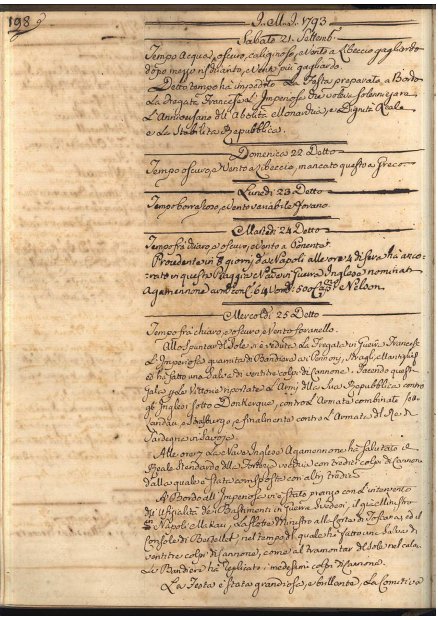 198
J. M. J. 1793
Sabato 21. Settemb.
Tempo Acqua, oscuro, caliginoso, e Vento a Libeccio gagliardo
dopo mezzo rifduanto, e Vento più gagliardo.
Detto tempo ha impedito La Festa preparata a Bordo
La Fregata Francese L'Imperiosa che voleva solennizare
L'Anniversario dell'Abolita Monarchia, e Dignità Reale
e La Stabilita Repubblica.
Domenica 22 Detto
Tempo oscuro, e Vento a Libeccio, mancato questo a Greco
Lunedì 23 Detto
Tempo borrascoso, e Vento variabile forano
Martedì 24 Detto
Tempo frà chiaro, e oscuro, e Vento a Ponente
Procedente in giorni da Napoli alle ore 4 di sera hà anco-
rato in questa Spiaggia e Nave in Guerra Inglese nominat
Agamennone con 64 500 Nelson.
Mercoldì 25 Detto
Tempo frà chiaro, e oscuro e Vento foranello.
Allo Spuntar del Sole si è veduta La Fregata in Guerra Francese
L'Imperiosa guarnita di Bandiere, e Pennoni,
ed hà fatto una Salva di ventitre colpi di Cannone. Facendo questi
Gala p le Vittorie riportate dall'Armi della Sua Repubblica contro
gl'Inglesi sotto Donkerque, contro L'Armata combinata
Landau, e finalmente contro L'Armata del Rè di
Sardegna in Savoja.
Alle ore 9 La Nave Inglese Agamennone hà Salutato il
Reale Stendardo della Fortezza con tredici colpi di Cannone
dalla quale è stata corrisposta con altri tredici.
A Bordo all'Imperiosa vi è stato pranzo con l'intervento
de' Bastimenti in Guerra Svedesi, il Ministro
Napoli Makau, La Flotte Ministro alla Corte di Toscana, ed il
Console di nel tempo del quale hà fatto una Salva di
ventitre colpi di Cannone, come al tramontar del Sole nel cala-
re Bandiera hà replicato i medesimi colpi di Cannone.
La Festa è stata grandiosa, e brillante, La Comitiva